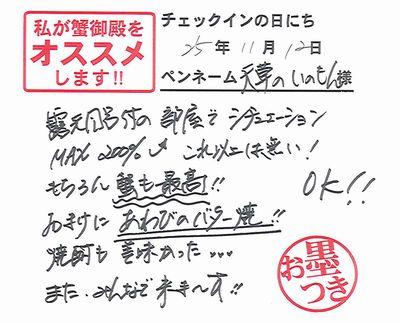 私が蟹御殿を
オススメ
します!!
チェックインの日にち
25年11月12日
ペンネーム天草のいのもん様
露天風呂付の部屋でシチュエーション
MAX 200%⤴ これ以上は無い!
もちろん蟹も最高!!
OK!!
おまけにあわびのバター焼!!
焼酎も美味かった…
また、みんなで来ま〜す!!
お墨つき